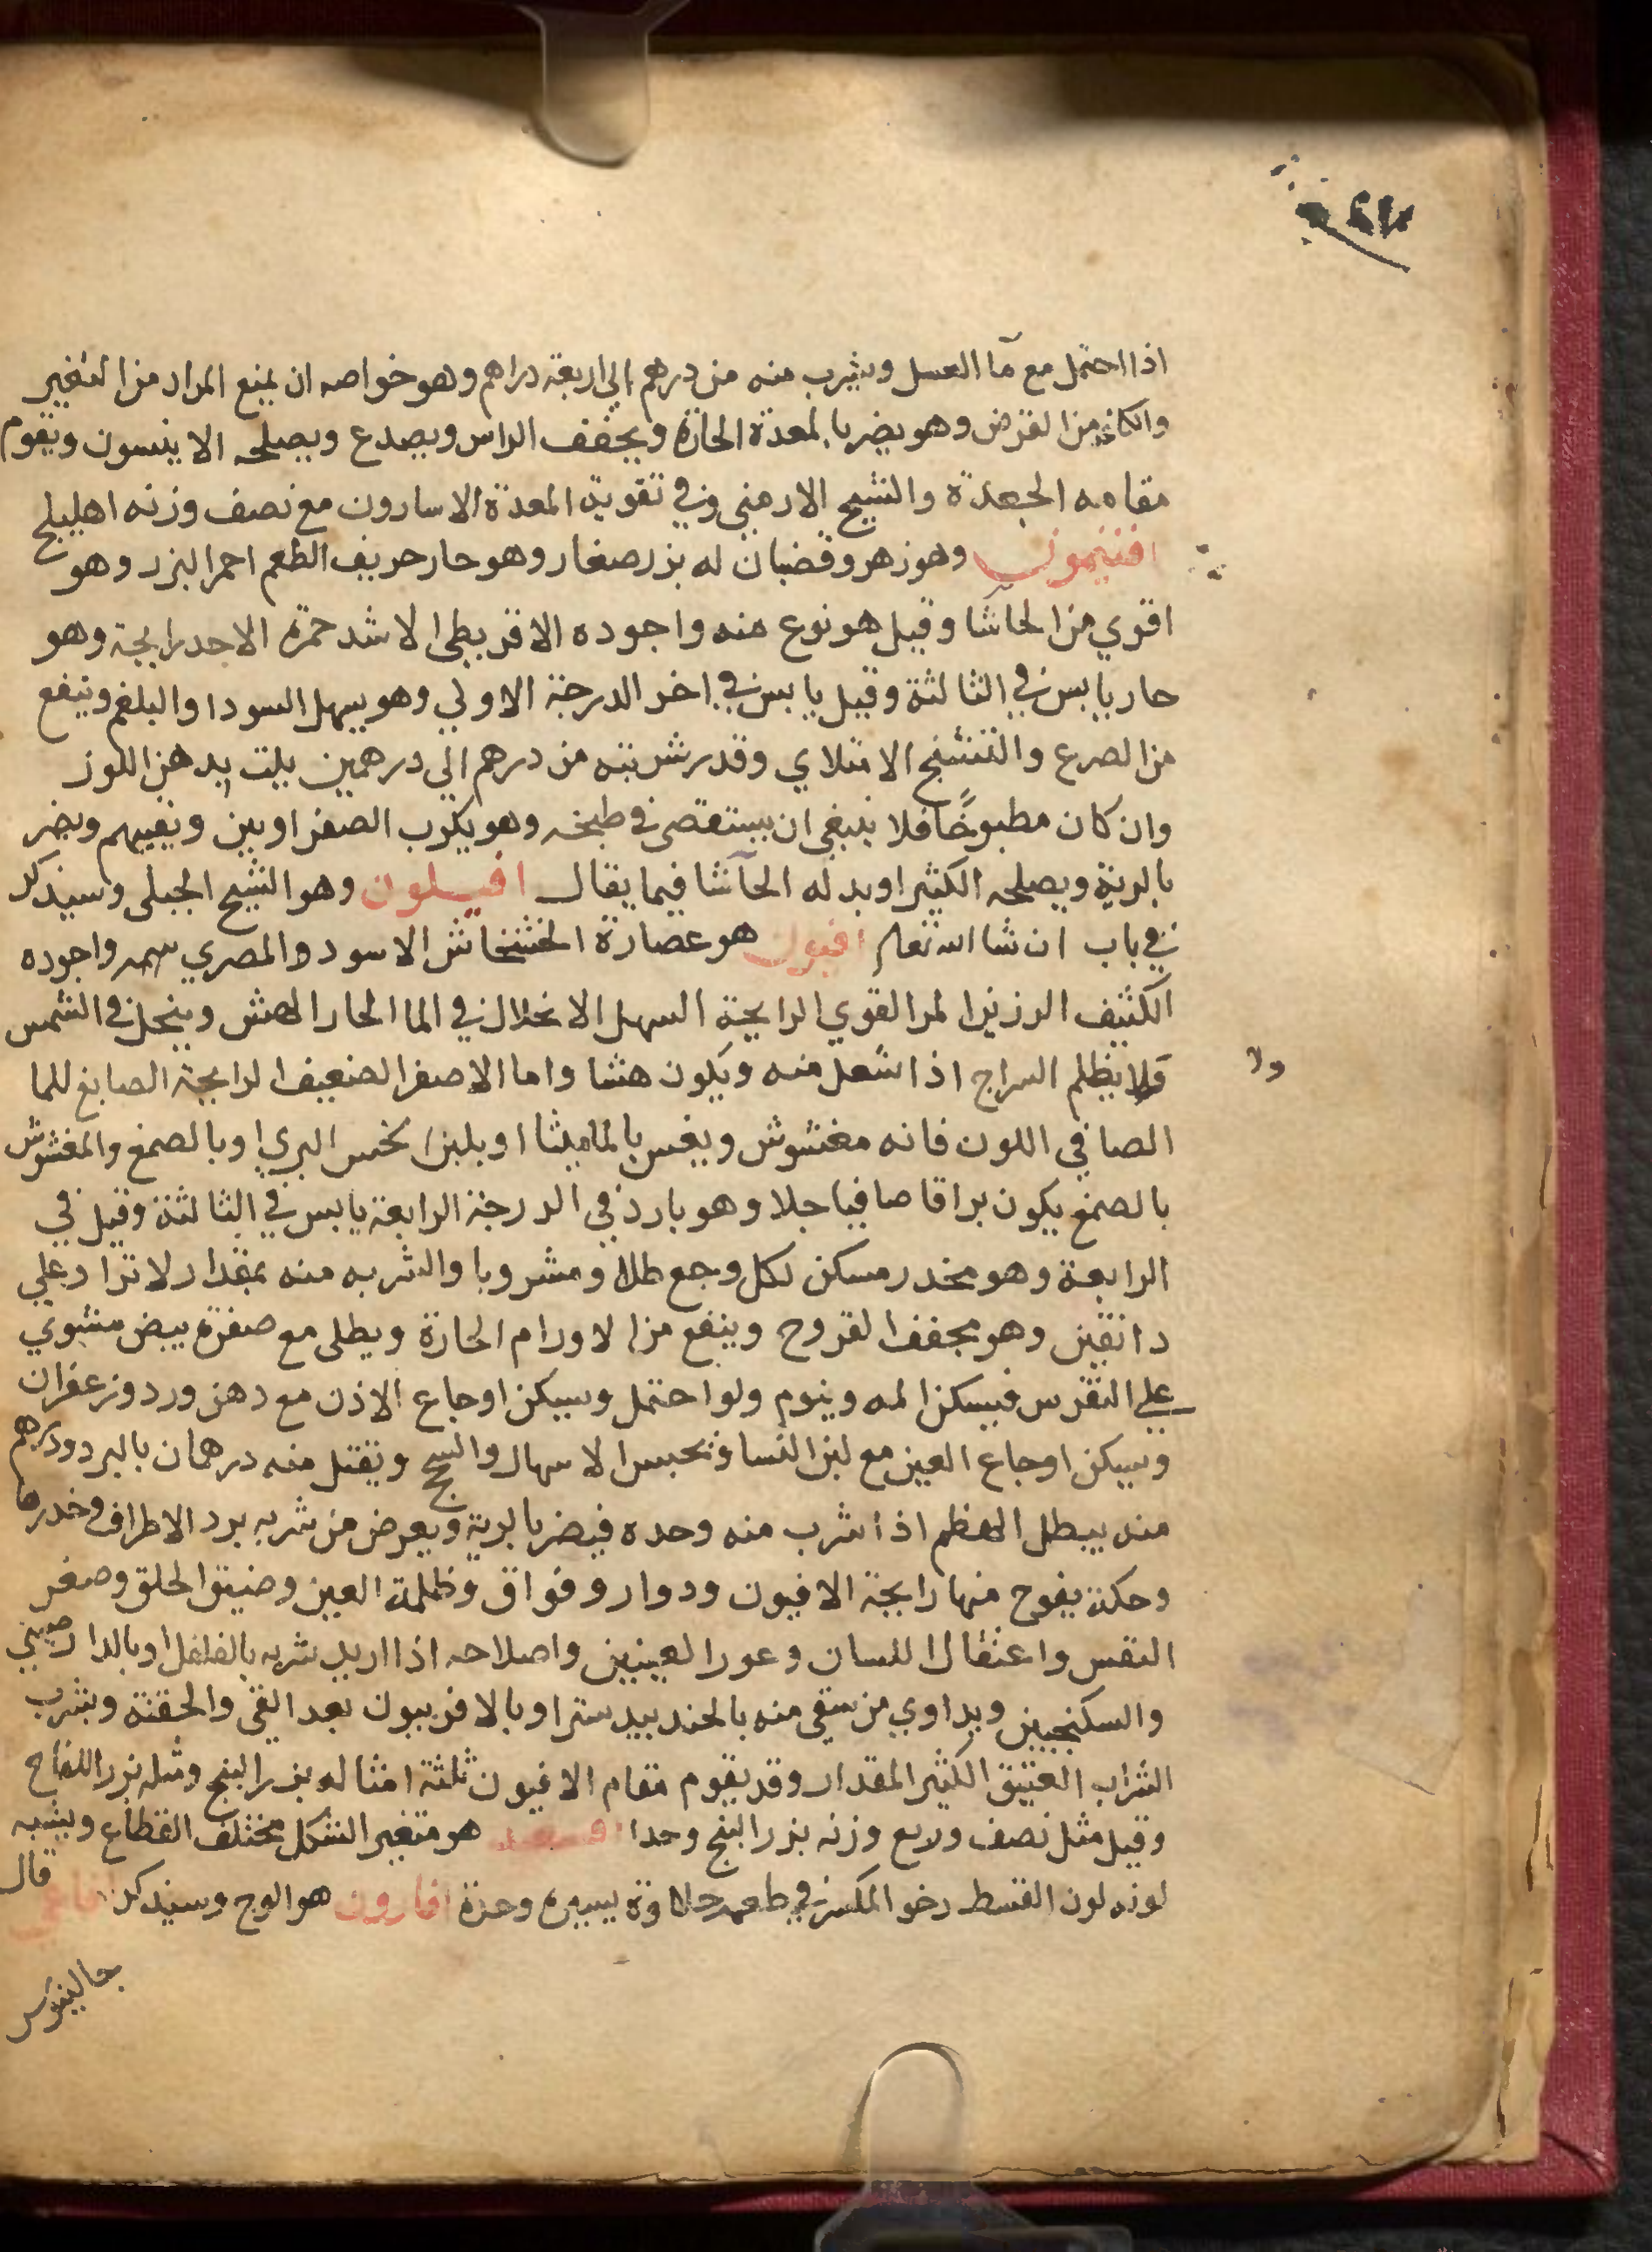 اذا احتمل مع مآ العسل ويشرب منه من درهم الي اربعة دراهم وهو خواصه ان يمنع المداد من التغيير
والكاغد من القرض وهو يضر بالمعدة الحارة ويجفف الراس ويصدع ويصلحه الانيسون ويقوم
مقامه الجعدة والشيح الارمني وفي تقوية المعدة الاسارون مع نصف وزنه اهليلج
افتيمون وهو زهر وقضبان له بزر صغار وهو حار حريف الطعم احمر البزر وهو
اقوي من الحاشا وقيل هو نوع منه واجوده الاقريطي الاشد حمرة الاحد رايحة وهو
حار يابس في الثالثة وقيل يابس في اخر الدرجة الاولي وهو يسهل السودا والبلغم وينفع
من الصرع والتشنج الامتلاي وقدر شربته من درهم الي درهمين يلت بدهن اللوز
وان كان مطبوخًا فلا ينبغي ان يستقصي في طبخه وهو يكرب الصفراويين ويغييهم ويضر
بالرية ويصلحه الكثيرا وبدله الحآشا فيما يقال افيلون وهو الشيح الجبلي وسيذكر
في باب ان شا الله تعالي افيون هو عصارة الخشخاش الاسود والمصري سمه واجوده
الكثيف الرزين المر القوي الرايحة السهل الانحلال في الما الحار الهش وينحل في الشمس
ولا يظلم السراج اذا اشعل منه ويكون هشا واما الاصفر الضعيف الرايحة الصابغ للما
ولا
الصافي اللون فانه مغشوش ويغش بالماميثا او بلبن الخس البري او بالصمغ والمغشوش
بالصمغ يكون براقا صافيا جلا وهو بارد في الدرجة الرابعة يابس في الثالثة وقيل في
الرابعة وهو مخدر مسكن لكل وجع طلا ومشروبا والشربه منه بمقدار لا تزاد علي
دانقين وهو مجفف القروح وينفع من الاورام الحارة ويطلي مع صفرة بيض مشوي
علي النقرس فيسكن المه وينوم ولو احتمل ويسكن اوجاع الاذن مع دهن ورد وزعفران
ويسكن اوجاع العين مع لبن النسا وتحبس الاسهال والسحج ويقتل منه درهمان بالبرد ودرهم
منه يبطل الهظم اذا شرب منه وحده فيضر بالرية ويعرض من شربه برد الاطراف وخدرها
وحكة يفوح منها رايحة الافيون ودوار وفواق وظلمة العين وضيق الحلق وصغر
النفس واعتقال اللسان وغور العينين واصلاحه اذا اريد شربه بالفلفل او بالدارصيني
والسكنجبين ويداوي من سقي منه بالجندبيدستر او بالافربيون بعد القي والحقنة ويشرب
الشراب العتيق الكثير المقدار وقد يقوم مقام الافيون ثلثة امثاله بزر البنج ومثله بزر اللفاح
وقيل مثل نصف وربع وزنه بزر البنج وحدا هو متغير الشكل مختلف القطاع ويشبه
لونه لون القسط رخو المكسر في طعمه حلاوة يسيرة وحدة افارون هو الوج وسيذكر افاعي قال
جالينوس